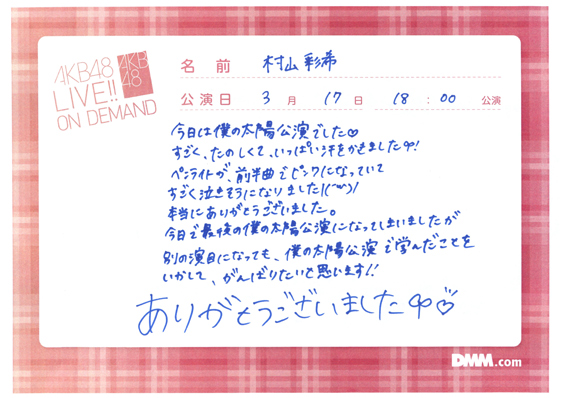 AKB48
LIVE!!
ON DEMAND
AKB
48
名前 村山彩希
公演日 3月 17日 18:00 公演
今日は僕の太陽公演でした♡
すごく、たのしくて、いっぱい汗をかきました!
ペンライトが、前半曲でピンクになっていて
すごく泣きそうになりました!(~~)!
本当にありがとうございました。
今日で最後の僕の太陽公演になってしまいましたが
別の演目になっても、僕の太陽公演で学んだことを
いかして、がんばりたいと思います!!
ありがとうございました♡
DMM.com